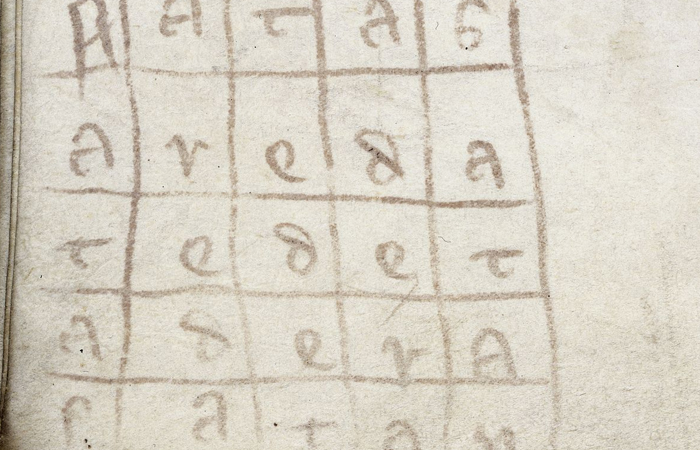 R A T A S
A r e d A
T e d e T
A d e r A
A T A